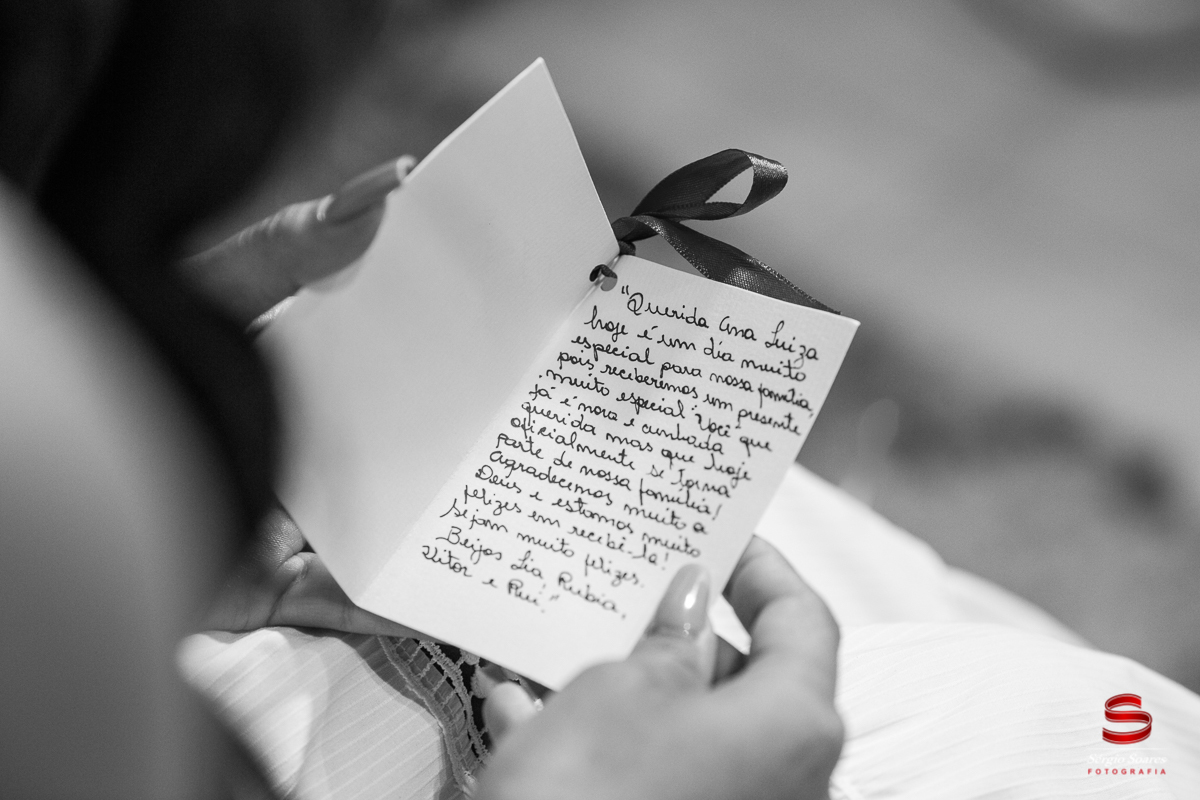 "Querida Ana Luiza
hoje é um dia muito
especial para nossa família,
pois receberemos um presente
muito especial: Você que
já é nora e cunhada
querida mas que hoje
oficialmente se torna
parte de nossa família!
Agradecemos muito a
Deus e estamos muito
felizes em recebê-la!
Sejam muito felizes.
Beijos Lia Rúbia,
Vitor e Rui."
S
Sérgio Soares
FOTOGRAFIA